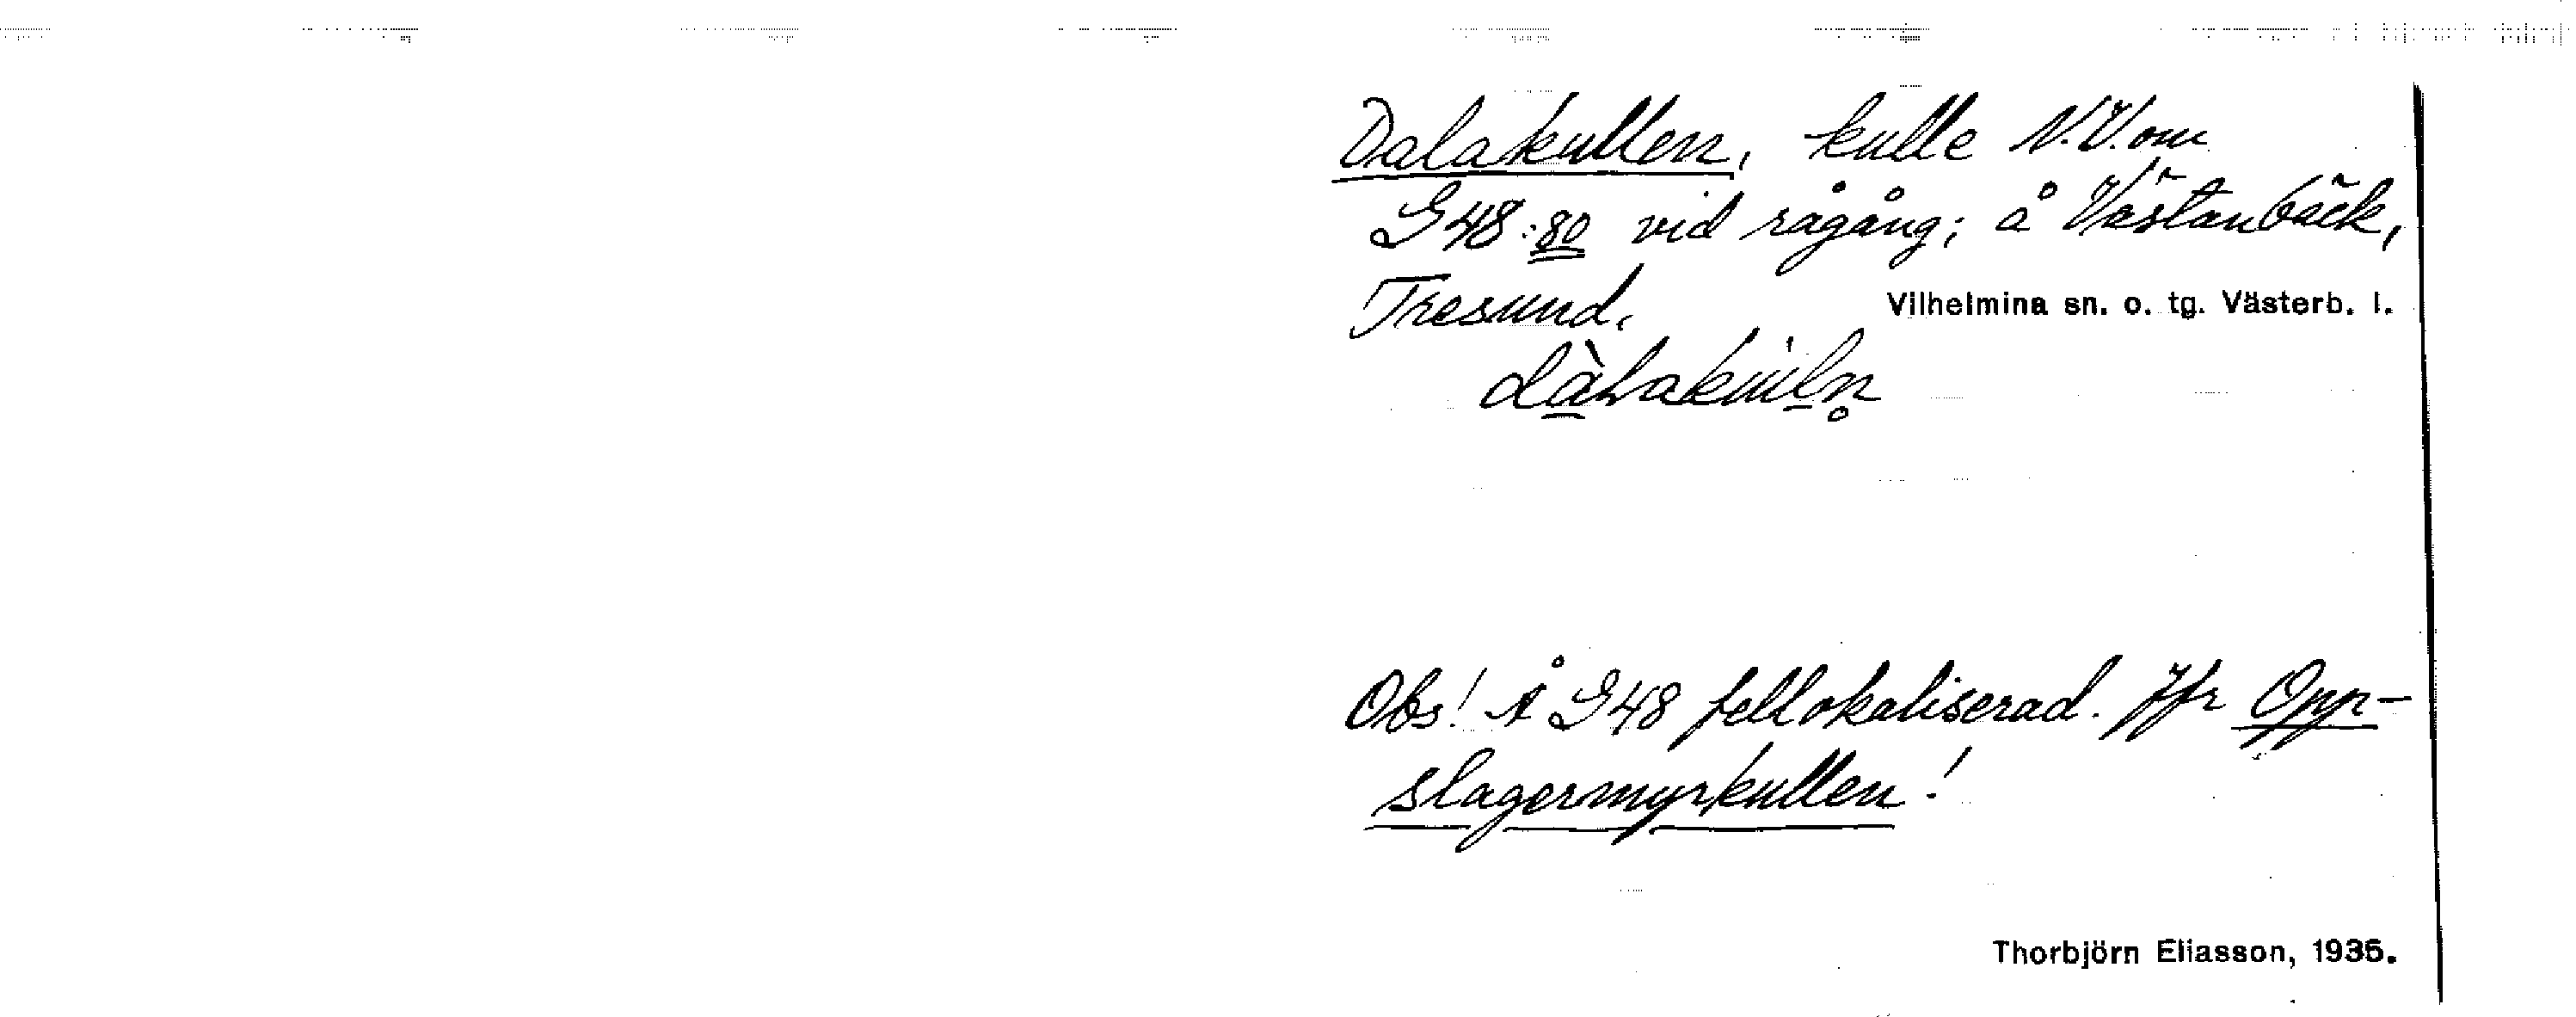 Dalakullen, kulle N.V. om
G48:80 vid rågång; å Västanbäck,
Tresund, Vilhelmina sn. o. tg. Västerb. l.
Obs! Å G48 fellokaliserad. Jfr Opp-
slagermyrkullen!
Thorbjörn Eliasson, 1935.